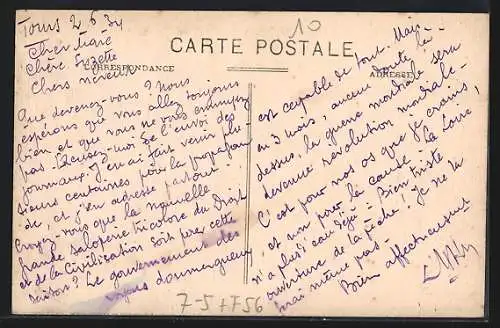 Tours 2 6 34
Cher Tigré
Chère Suzette
Chers neveux
10
CARTE POSTALE
CORRESPONDANCE
ADRESSE
Que devenez-vous ? Nous
espérons que vous allez toujours
bien et que vous ne vous ennuyez
pas. Excusez-moi de l'envoi des
journaux. J'en ai fait venir plu
sieurs centaines pour la propagan
de, et j'en adresse partout.
Croyez-vous que la nouvelle
grande saloperie tricolore du Droit
et de la Civilisation soit pour cette
saison ? Le gouvernement des
voyous doumergueux
est capable de tout. Mais
à 3 mois, aucun doute là
dessus, la guerre mondiale sera
devenue révolution mondiale.
C'est pour nos os que je crains,
et non pour la cause. La Loire
n'a plus d'eau déjà. Bien triste
ouverture de la pêche ! Je ne la
ferai même pas.
Bien affectueusement
7-5 + F56